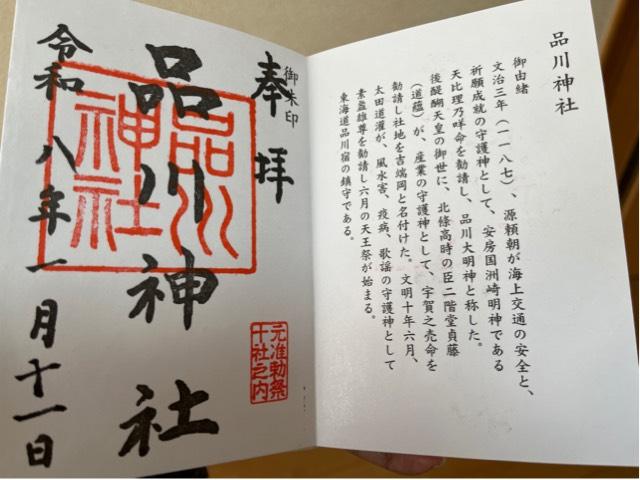 品川神社
御由緒
文治三年（一一八七）、源頼朝が海上交通の安全と、
祈願成就の守護神として、安房国洲崎明神である
天比理乃咩命を勧請し、品川大明神と称した。
後醍醐天皇の御世に、北條高時の臣二階堂貞藤
（道蘊）が、産業の守護神として、宇賀之売命を
勧請し社地を吉端岡と名付けた。文明十年六月、
太田道灌が、風水害、疫病、歌謡の守護神として
素盞雄尊を勧請し六月の天王祭が始まる。
東海道品川宿の鎮守である。
御朱印
奉拝
元准勅祭
十社之内
品川神社
品川
神社
令和八年一月十一日